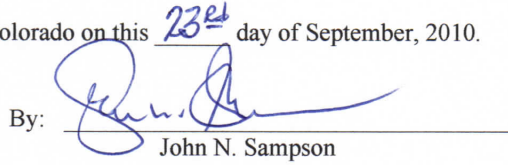 olorado on this 23rd day of September, 2010.
By:
John N. Sampson